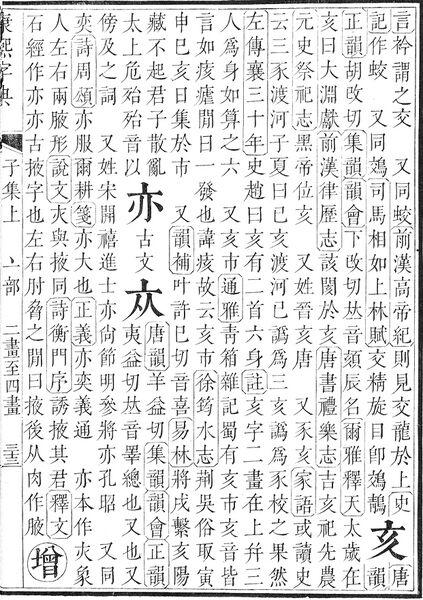 言衿謂之交　又同蛟前漢高帝紀則見交龍於上史
記作蛟　又同鵁司馬相如上林賦交精旋目卽鵁鶄
亥
唐
韻
正韻胡改切集韻韻會下改切𠀤音頦辰名爾雅釋天太歲在
亥曰大淵獻前漢律歷志該閡於亥唐書禮樂志吉亥祀先農
元史祭祀志黑帝位亥　又姓晉亥唐　又豕亥家語或讀史
云三豕渡河子夏曰己亥渡河已譌爲三亥譌爲豕校之果然
左傳襄三十年史趙曰亥有二首六身註亥字二畫在上幷三
人爲身如算之六　又亥市通雅靑箱雜記蜀有亥市亥音皆
言如痎瘧閒日一發也諱痎故云亥市徐筠水志荆吳俗取寅
申巳亥日集於市　又韻補叶許已切音喜易林將戌繫亥陽
藏不起君子散亂
太上危殆殆音以
亦
古文
唐韻羊益切集韻韻會正韻
夷益切𠀤音睪總也又也又
傍及之詞　又姓宋開禧進士亦尙節明參將亦孔昭　又同
奕詩周頌亦服爾耕箋亦大也正義亦奕義通　亦本作夾象
人左右兩腋形說文夾與掖同詩衡門序誘掖其君釋文
石經作亦亦古掖字也左右肘脅之閒曰掖後从肉作腋
增
康熙字典　子集上　亠部　二畫至四畫　三十三